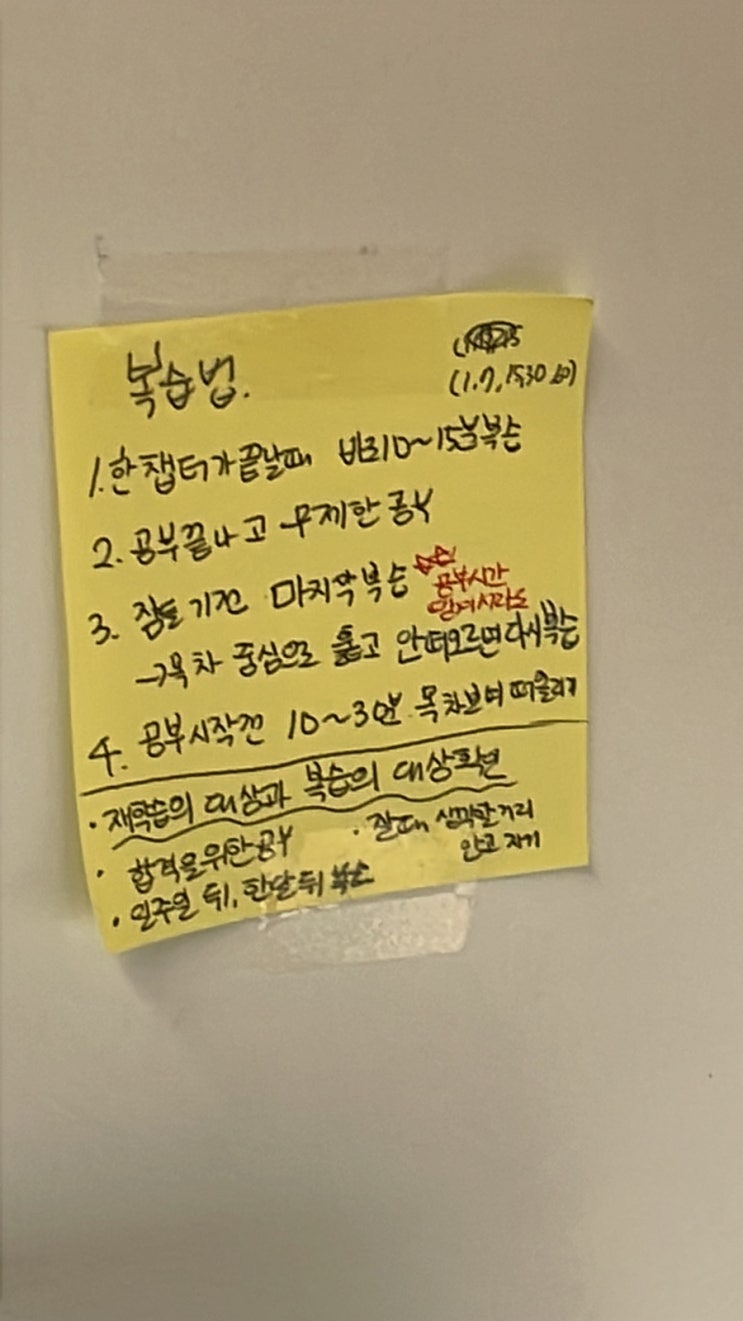 복습법.
(1.7, 15,30,60)
1. 한 챕터가 끝날때 바로 10~15분 복습
2. 공부끝나고 무제한 공부
3. 잠들기전 마지막 복습 ☆☆ 공부시간
줄여서라도
→ 목차 중심으로 훑고 안떠오르면 다시 복습
4. 공부시작전 10~30분 목차보며 떠올리기
· 재학습의 대상과 복습의 대상확인
· 합격을위한공부
· 잘때 생각할거리
안고 자기
· 일주일 뒤, 한달 뒤 복습